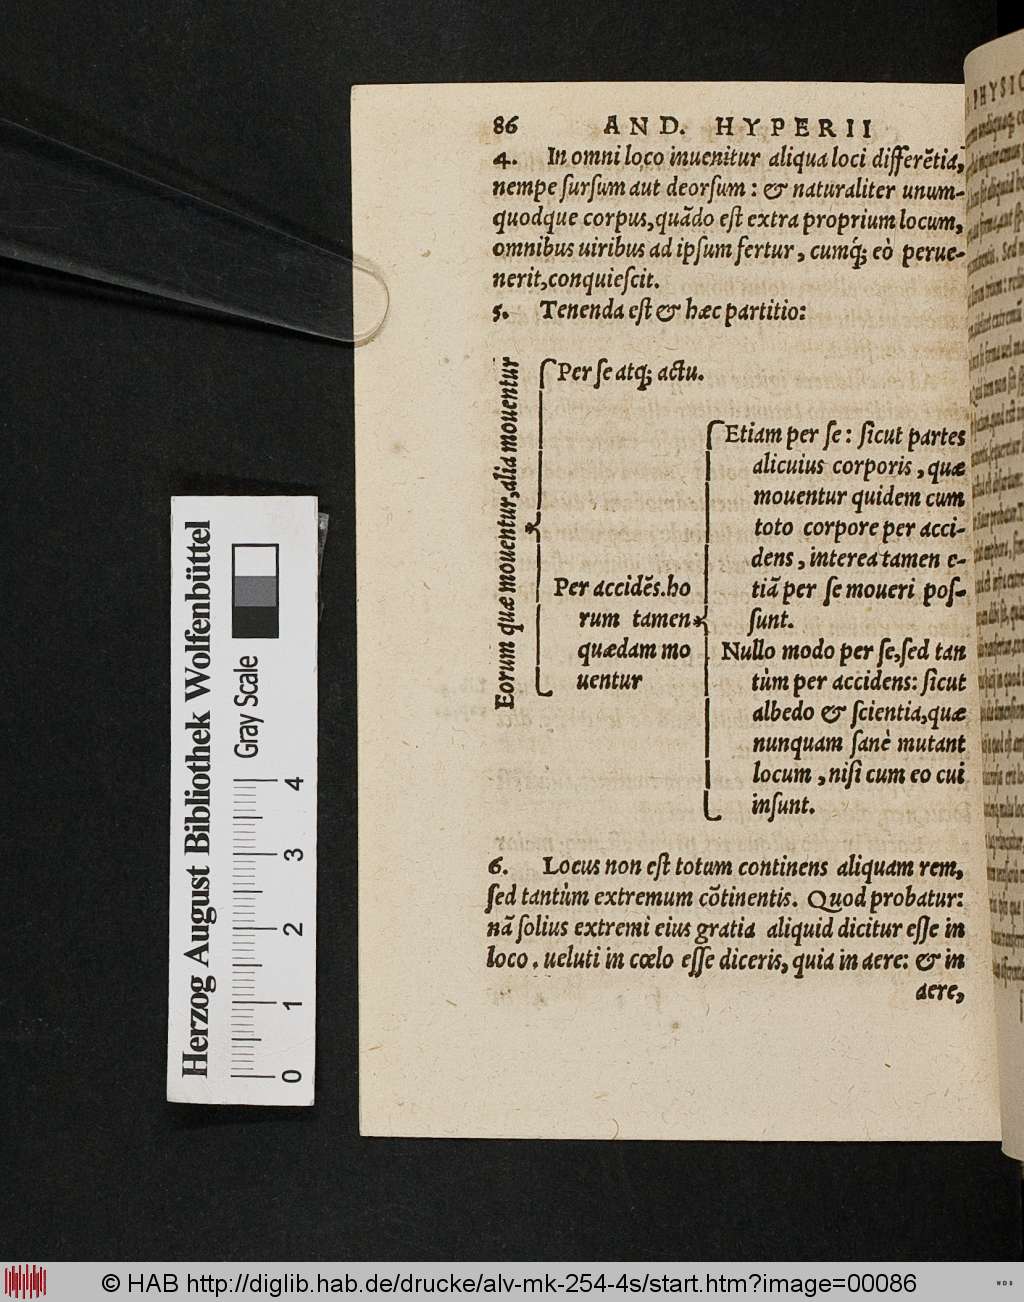 86 AND. HYPERII
4. In omni loco inuenitur aliqua loci differẽtia,
nempe ſurſum aut deorſum : & naturaliter unum-
quodque corpus, quãdo eſt extra proprium locum,
omnibus uiribus ad ipſum fertur, cumq́; eò perue-
nerit, conquieſcit.
5. Tenenda eſt & hæc partitio:
Eorum quæ mouentur, alia mouentur
Per ſe atq; actu.
Per accidẽs. ho
rum tamen
quædam mo
uentur
Etiam per ſe : ſicut partes
alicuius corporis, quæ
mouentur quidem cum
toto corpore per acci-
dens, interea tamen e-
tiã per ſe moueri poſ-
ſunt.
Nullo modo per ſe, ſed tan
tùm per accidens: ſicut
albedo & ſcientia, quæ
nunquam ſanè mutant
locum, niſi cum eo cui
inſunt.
6. Locus non eſt totum continens aliquam rem,
ſed tantùm extremum cõtinentis. Quod probatur:
nã ſolius extremi eius gratia aliquid dicitur eſſe in
loco. ueluti in cœlo eſſe diceris, quia in aere: & in
aere,
Herzog August Bibliothek Wolfenbüttel
Gray Scale
0 1 2 3 4
© HAB http://diglib.hab.de/drucke/alv-mk-254-4s/start.htm?image=00086